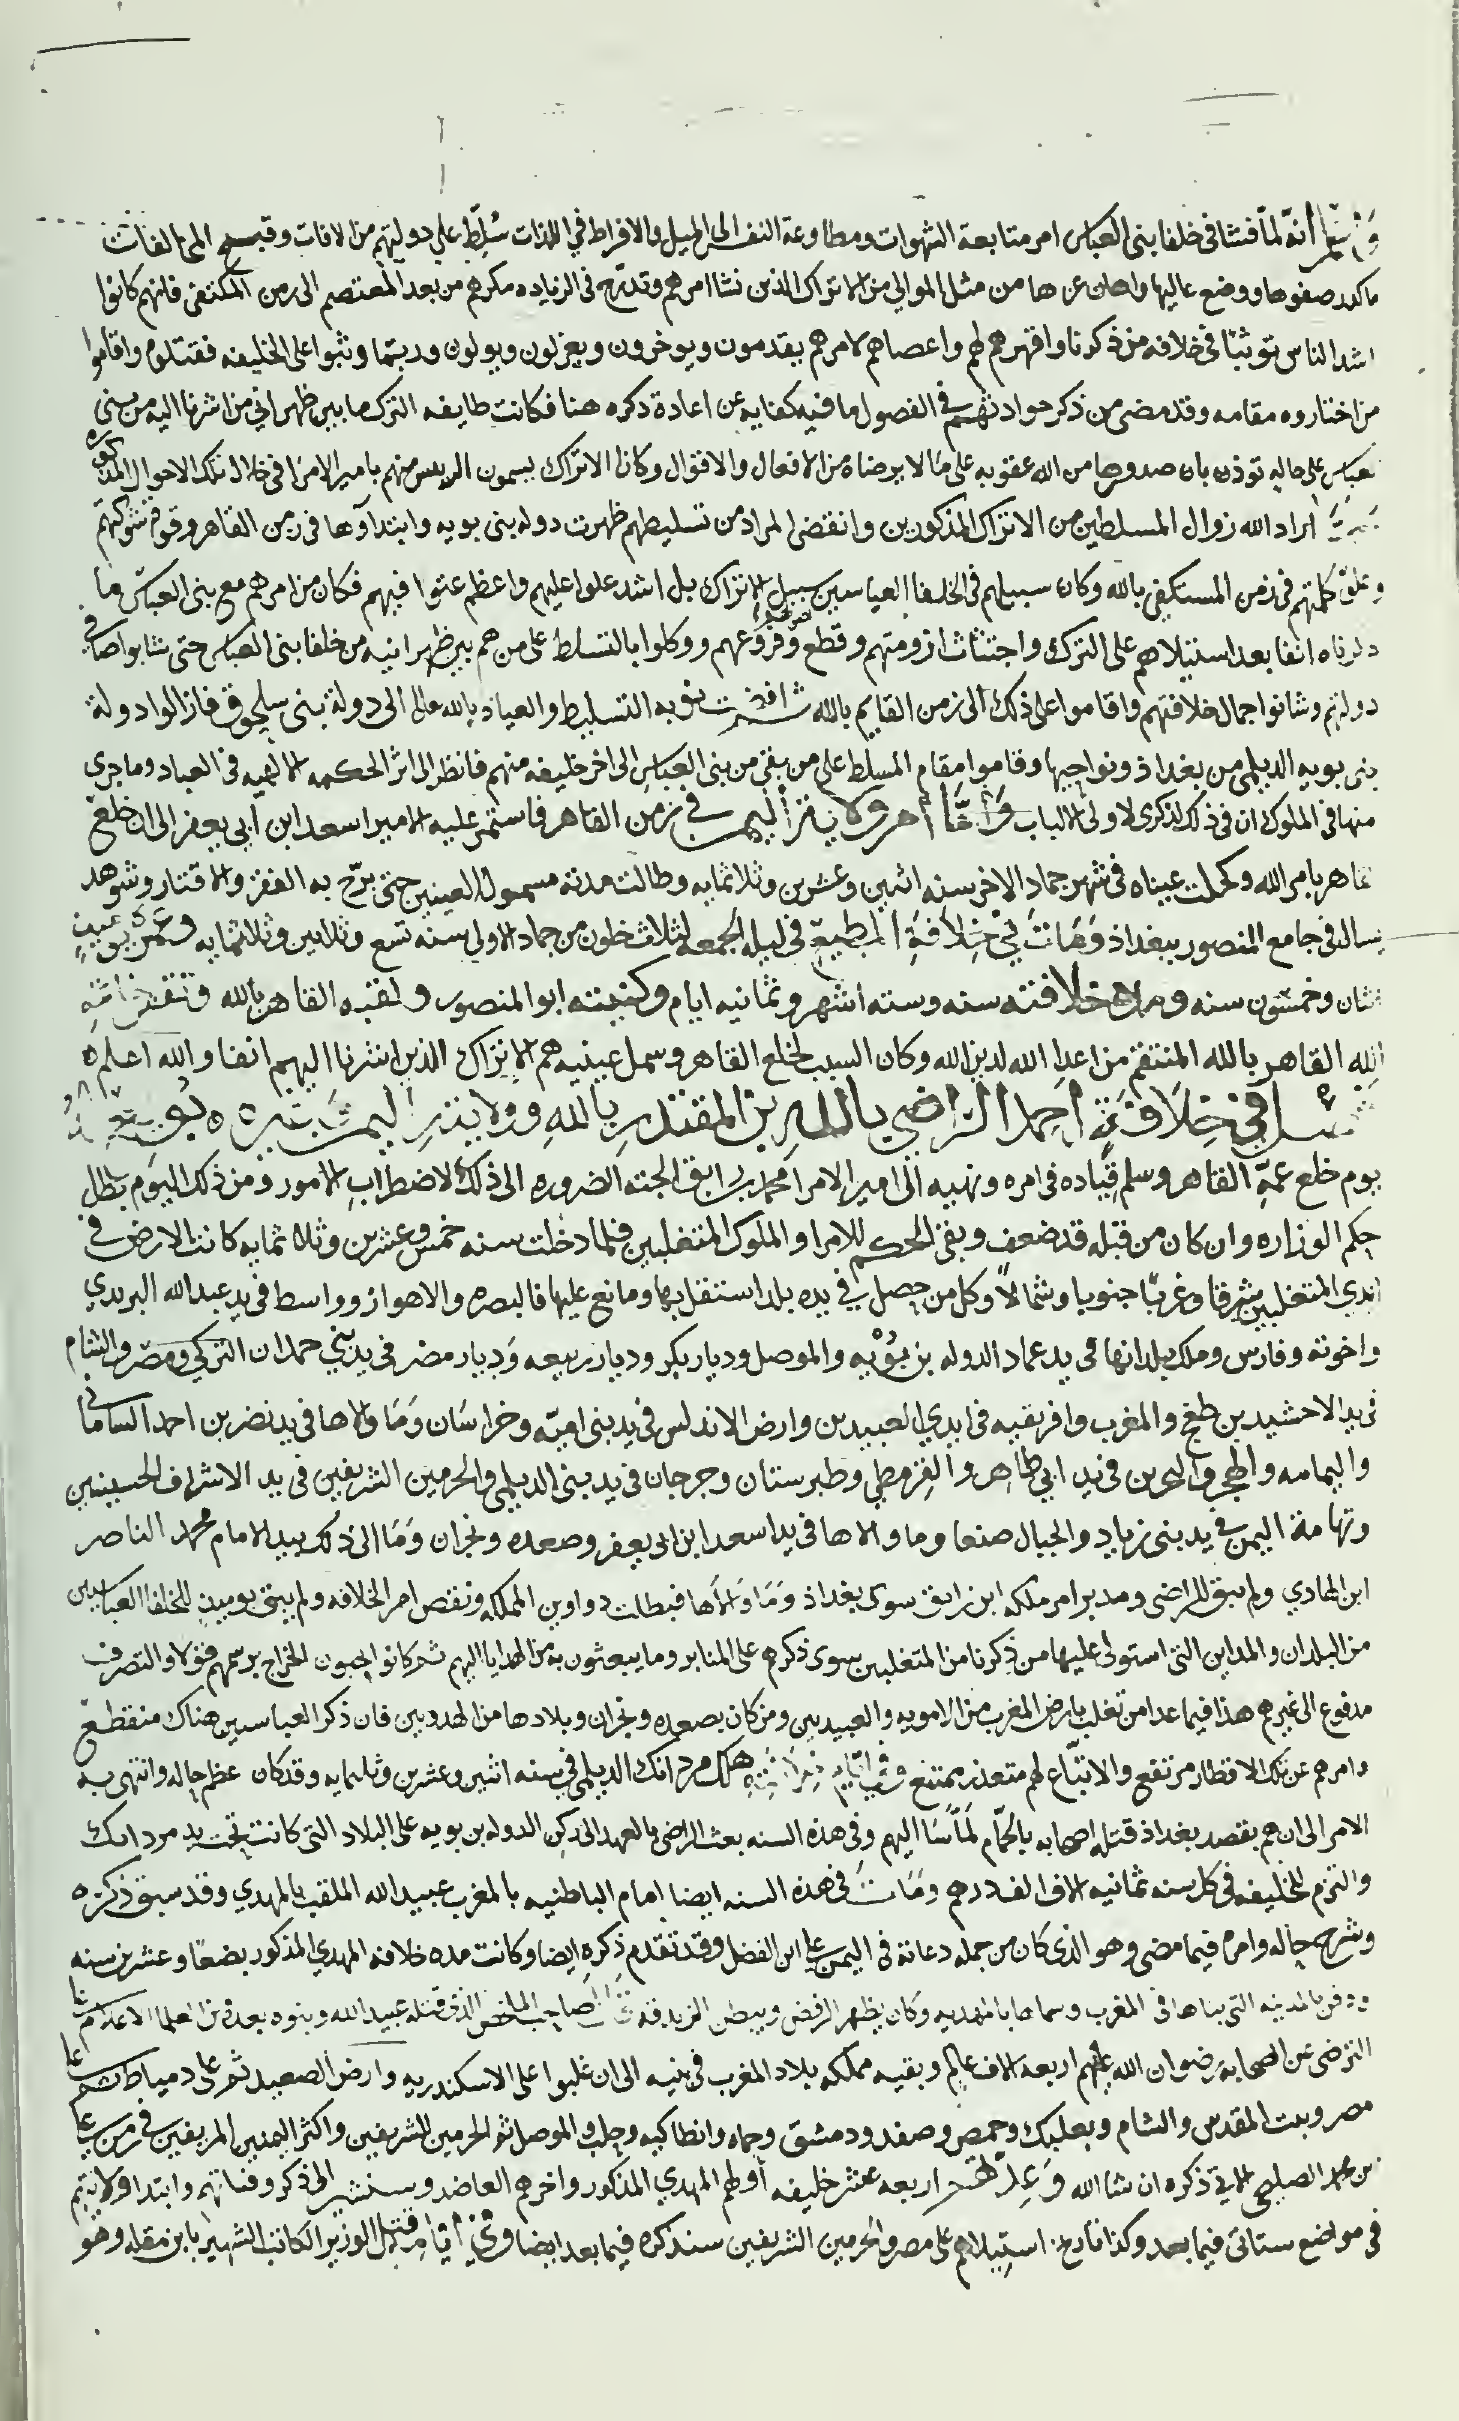 واعلم أنه لما فشا في خلفا بني العباس امر متابعة الشهوات ومطاوعة النفس الى الميل والافراط في اللذات سُلِّط علي دولتهم من الافات وقبيح المخالفات
ما كدر صفوها ووضع عاليها واهان عزها من مثل الموالي من الاتراك الذين نشا امرهم وتدرّج في الزياده مكرهم من بعد المعتصم الى زمن المكتفي فانهم كانوا
اشد الناس توثبًا في خلافه من ذكرنا واقهرهم لهم واعصاهم لامرهم يقدمون ويوخرون ويعزلون ويولون وربتما وثبوا على الخليفه فقتلوه واقاموا
من اختاروه مقامه وقد مضى من ذكر حوادثهم في الفصول ما فيه كفايه عن اعادة ذكره هنا فكانت طايفه الترك ما بين ظهراني من اشرنا اليه من بني
العباس على حاله توذن بان صدورها من الله عقوبه على ما لا يرضاه من الافعال والاقوال وكان الاتراك يسمون الريس منهم بامير الامرا في خلال تلك الاحوال المذكوره
اراد الله زوال المسلطين من الاتراك المذكورين وانقضى المراد من تسليطهم ظهرت دوله بني بويه وابتداوها في زمن القاهر وقوة شوكتهم
وعلو كلمتهم في زمن المستكفي بالله وكان سبيلهم في الخلفا العباسيين سبيل الاتراك بل اشد علوا عليهم واعظم عتوا فيهم فكان من امرهم مع بني العباس ما
ذكرناه انفا بعد استيلاهم على الترك واجتثاث ارومتهم وقطع فروعهم ووكلوا بالتسلط على من هم بين ظهرانيه من خلفا بني العباس حتى شابوا صافي
دولتهم وشانوا جمال خلافتهم واقاموا على ذلك الى زمن القايم بالله ثم افضت نوبه التسليط والعياذ بالله تعالى الى دولة بني سلجوق فازالوا دولة
بني بويه الديلمي من بغداذ ونواحيها وقاموا مقام المسلط على من بقى من بني العباس الى اخر خليفه منهم فانظر الى اثر الحكمه الالهيه في العباد وما جرى
منها في الملوك ان في ذلك لذكرى لاولى الالباب وَامَّا امر ولاية اليمن في زمن القاهر فاستمر عليه الامير اسعد ابن ابي يعفر الى ان خلع
القاهر بامر الله وكحلت عيناه في شهر جماد الاخر سنه اثنين وعشرين وثلاثمايه وطالت مدته مسمول العينين حتى برّح به الفقر والاقتار وشوهد
يسال في جامع المنصور ببغداذ وَمَات في خِلافَةِ المطيع في ليله الجمعه لثلاث خلون من جماد الاولى سنه تسع وثلاثين وثلاثمايه وعمره يوميذٍ
ثمان وخمسون سنه ومده خلافته سنه وستة اشهر وثمانيه ايام وكنيته ابو المنصور ولقبه القاهر بالله ونقش خاتمه
الله القاهر بالله المنتقم من اعدا الله لدين الله وكان السبب لخلع القاهر وسمل عينيه هم الاتراك الذين اشرنا اليهم انفا والله اعلم
فصل في خلافة احمد الراضي بالله بن المقتدر بالله وولاية اليمن بويع
يوم خلع عمّه القاهر وسلم قياده في امره ونهيه الى امير الامرا محمد بن رايق الجته الضروره الى ذلك لاضطراب الامور ومن ذلك اليوم بطل
حكم الوزاره وان كان من قبله قد ضعف وبقى الحكم للامرا والملوك المتغلبين فلما دخلت سنه خمس وعشرين وثلاثمايه كانت الارض في
ايدي المتغلبين شرقا وغربًا جنوبا وشمالاً وكل من حصل في يده بلد استقل بها ومانع عليها فالبصره والاهواز وواسط في يد عبدالله البريدي
واخوته وفارس وملك بلدانها في يد عماد الدوله بن بُوَيْه والموصل وديار بكر وديار ربيعه وَديار مضر في يد بني حمدان التركي ومصر والشام
في يد الاخشيد بن طغج والمغرب وافريقيه في ايدي العبيدين وارض الاندلس في يد بني اميّه وخراسَان وَمَا والاها في يد نصر بن احمد السَاماني
واليمامه والهجر والبحرين في يد ابي طاهر والقرمطي وطبرستان وجرجان في يد بني الديلمي والحرمين الشريفين في يد الاشراف الحسينيين
وتهامة اليمن في يد بني زياد والجبال صنعا وما والاها في يد اسعد ابن ابي يعفر وصعده ونجران وَمَا الى ذلك بيد الامام محمد الناصر
ابن الهادي ولم يبق للراضي ومدبر امر ملكه ابن رايق سوى بغداذ وَمَا وَالاها فبطلت دواوين المملكه ونقص امر الخلافه ولم يبق يوميذٍ للخلفا العباسيين
من البلدان والمداين التي استولى عليها من ذكرنا من المتغلبين سوى ذكرهم على المنابر وما يبعثون به من الهدايا اليهم ثم كانوا يجبون الخراج برسمهم قولا والتصرف
مدفوع الى غيرهم هذا فيما عدا من تغلب بارض المغرب من الامويه والعبيديين ومن كان بصعده ونجران وبلادها من الهدويين فان ذكر العباسيين هناك منقطع
وامرهم عن تلك الاقطار مرتفع والاتبّاع لهم متعذر ممتنع وفي ايام هلك مرداتك الديلمي في سنه اثنين وعشرين وثلثمايه وقد كان عظم حاله وانتهى به
الامر الى ان هم بقصد بغداذ قتله اصحابه بالحمّام لمّا سَا اليهم وفي هذه السنه بعث الراضي بالعهد الى ركن الدوله بن بويه على البلاد التي كانت تحت يد مرداتك
والتزم للخليفه في كل سنه ثمانيه الاف الف درهم وَمَات في هذه السنه ايضا امام الباطنيه بالمغرب عبيد الله الملقب بالمهدي وقد سبق ذكره
وشرح حاله وامره فيما مضى وهو الذي كان من جمله دعاته في اليمن علي ابن الفضل وقد تقدم ذكره ايضا وكانت مده خلافه المهدي المذكور بضعًا وعشرين سنه
ودفن بالمدينه التي بناها في المغرب وسماها بالمهديه وكان يظهر الرفض ويبطن الزندقه صاحب الملخص الذي قتله عبيد الله وبنوه بعده من العلما الاعلام
الترضى عن الصحابة رضوان الله عليهم اربعه الاف عالم وبقيه مملكه بلاد المغرب في بنيه الى ان غلبوا على الاسكندريه وارض الصعيد ثم على دمياط ثم على
مصر وبيت المقدس والشام وبعلبك وحمص وصفد ودمشق وحماه وانطاكيه وحلب والموصل ثم الحرمين الشريفين واكثر اليمن في زمن علي
بن محمد الصليحي الاتي ذكره ان شا الله وَعِدّتهم اربعه عشر خليفه أولهم المهدي المذكور واخرهم العاضد وسنشير الى ذكر وفياتهم وابتدا ولايتهم
في مواضع ستاتي فيما بعد وكذا تاريخ استيلاهم على مصر والحرمين الشريفين سنذكره فيما بعد ايضا وفي ايامه قتل الوزير الكاتب الشهير بابن مقله وهو